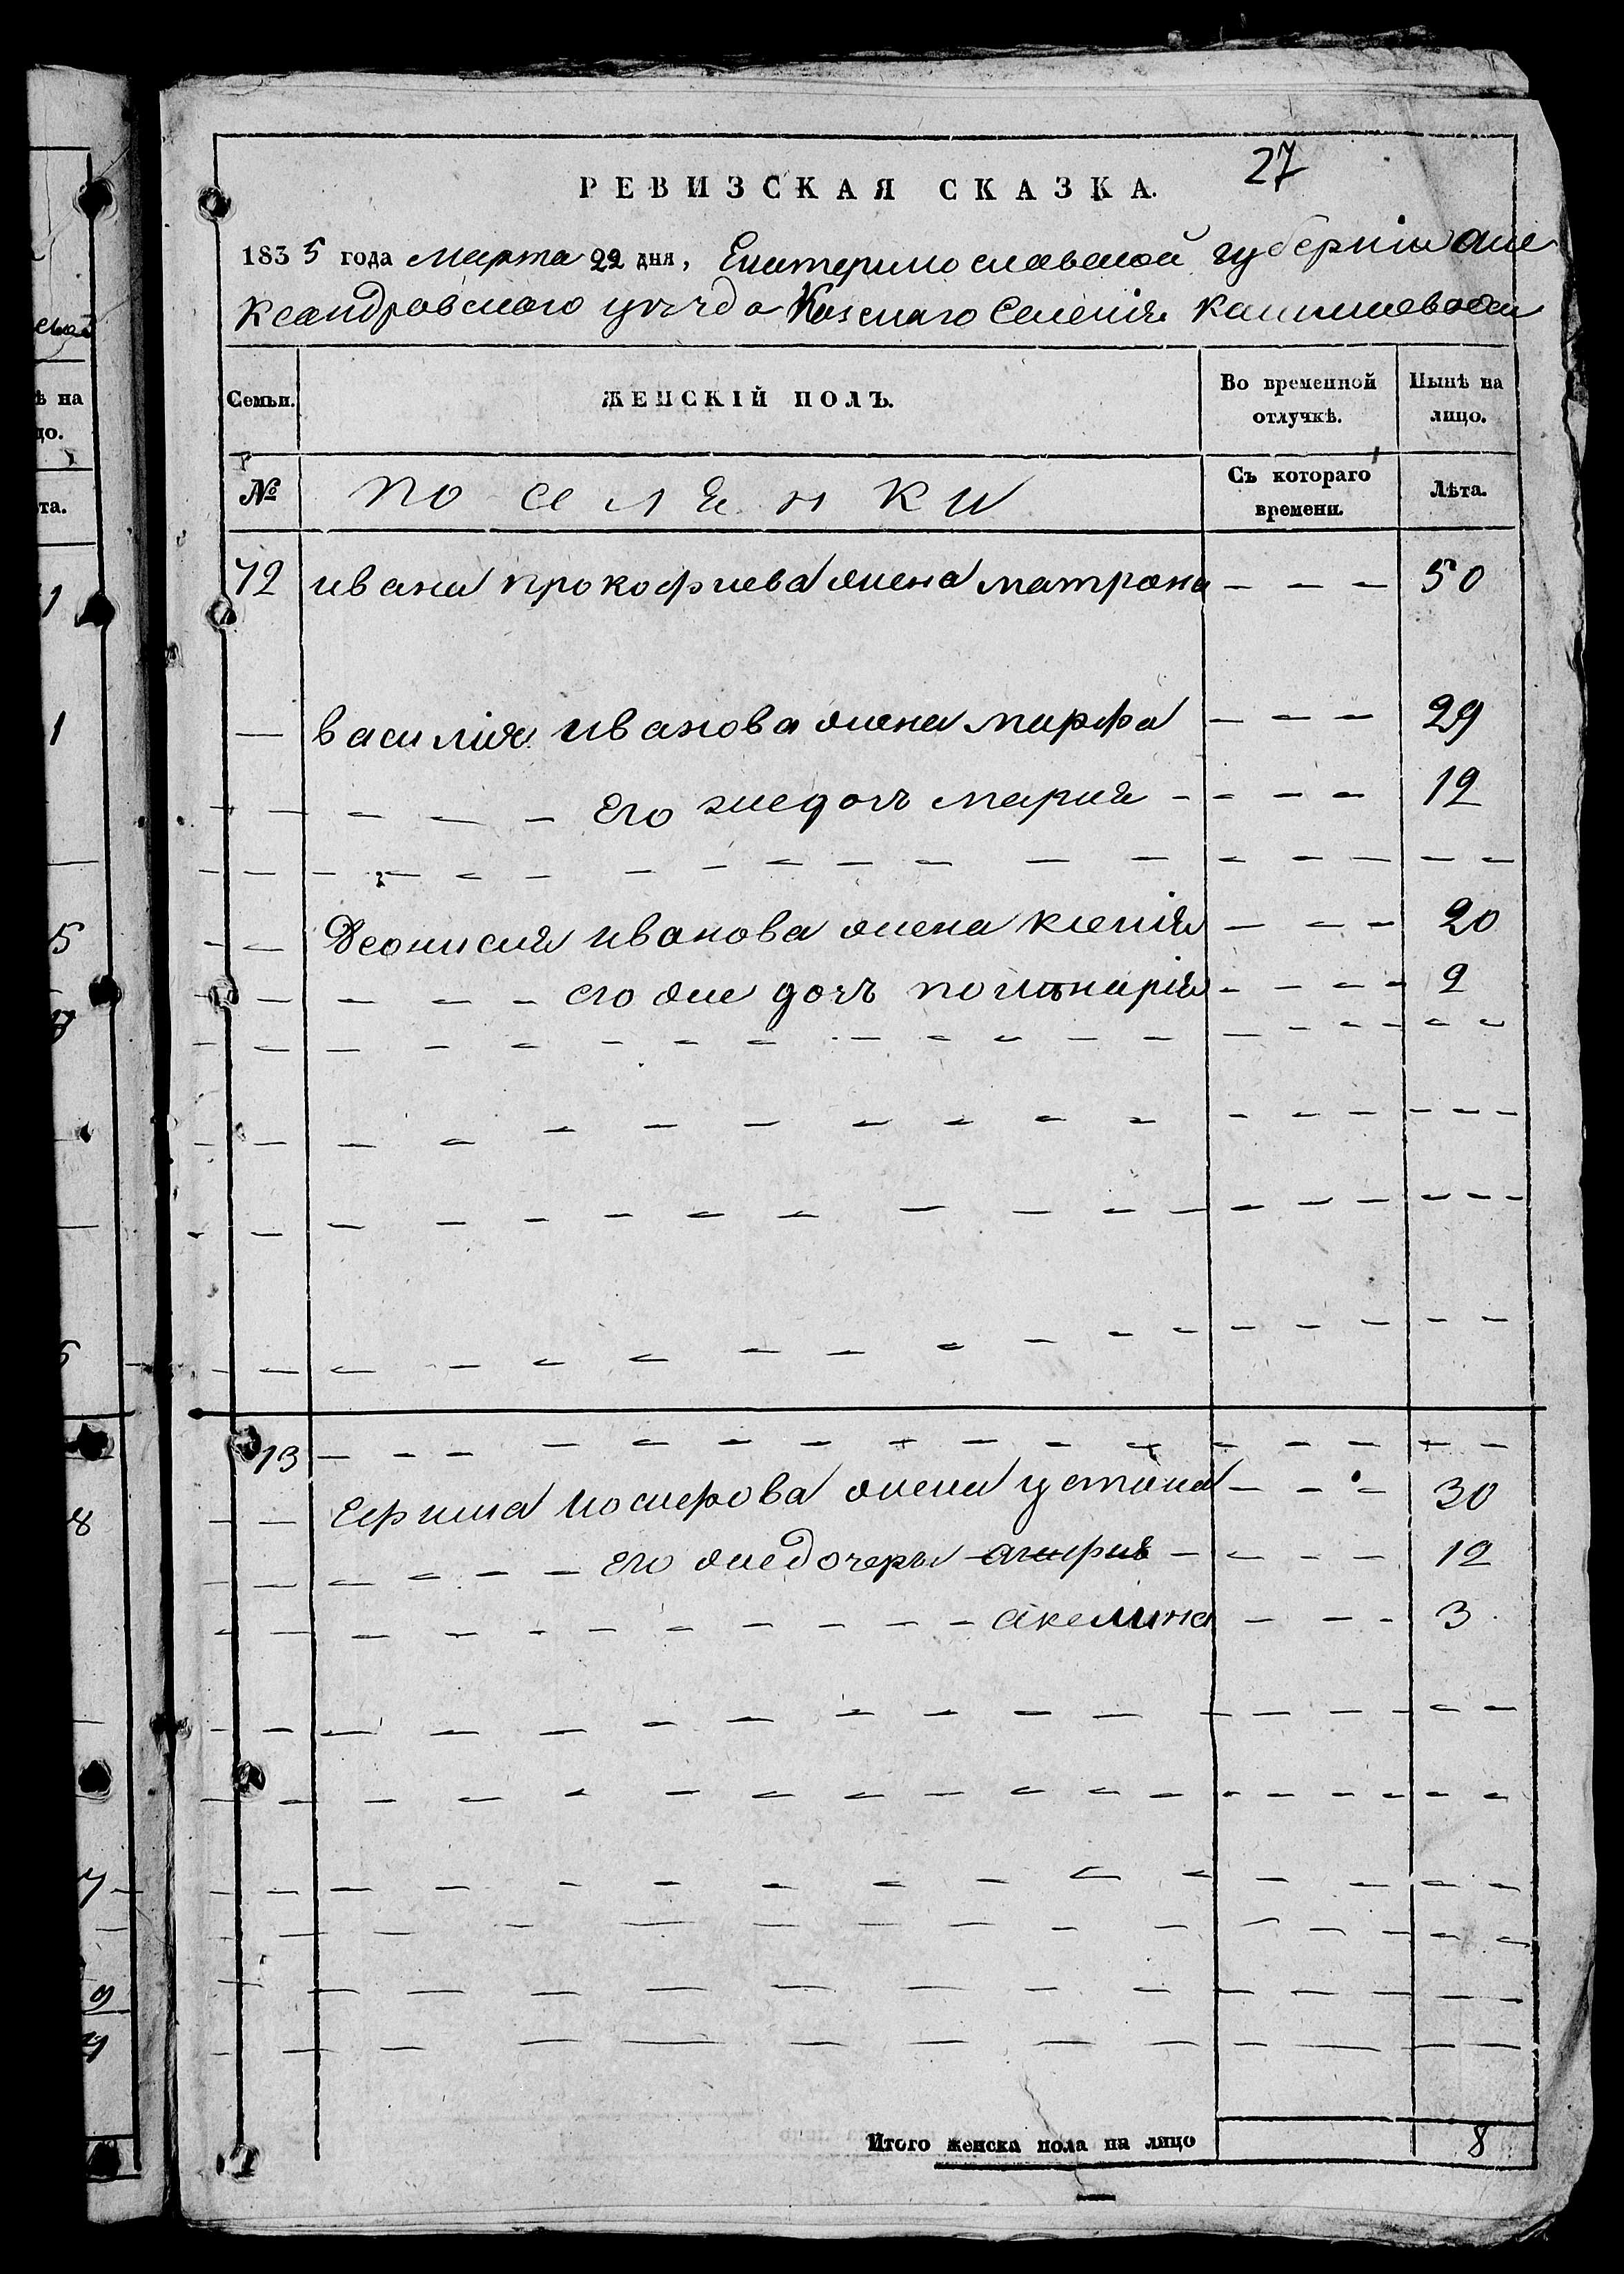 27
РЕВИЗСКАЯ СКАЗКА.
1835 года марта 22 дня, Екатеринославской губернии Але
ксандровского уезда Казенаго Селения
Семьи.
ЖЕНСКІЙ ПОЛЪ.
Во временной отлучкѣ.
Нынѣ на лицо.
№
поселянки
Съ котораго времени.
Лѣта.
72 ивана прокофиева жена матрона - - - 50
— василия иванова жена марфа - - - 29
его же доч мария - - - 12
Деонисия иванова жена ксения - - - 20
его же доч - - - 2
73
Ефима жена устина - - - 30
его же дочеры - - - 12
акелина - - - 3
Итого женска пола на лицо 8